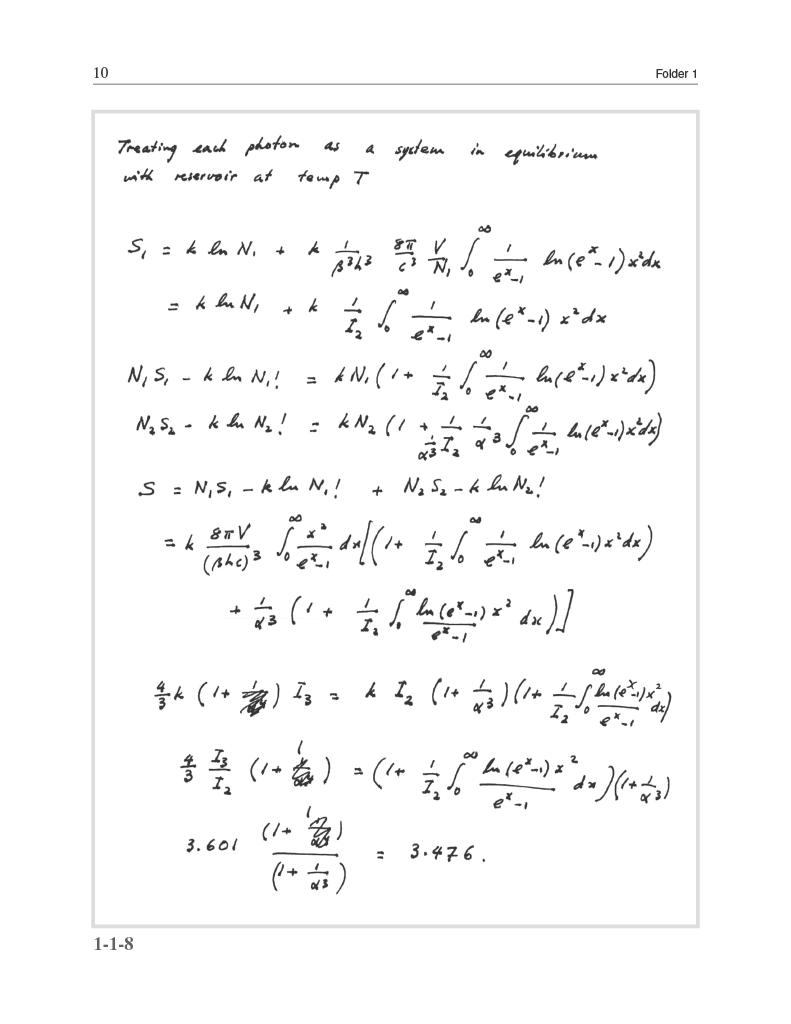 10 Folder 1
Treating each photon as a system in equilibrium
with reservoir at temp T
S₁ = k ln N₁ + k 1/(β³h³) 8π/c³ V/N₁ ∫₀^∞ 1/(eˣ-1) ln(eˣ-1) x²dx
= k ln N₁ + k 1/I₂ ∫₀^∞ 1/(eˣ-1) ln(eˣ-1) x²dx
N₁S₁ - k ln N₁! = kN₁(1 + 1/I₂ ∫₀^∞ 1/(eˣ-1) ln(eˣ-1) x²dx)
N₂S₂ - k ln N₂! = kN₂(1 + 1/((1/α³)I₂) 1/α³ ∫₀^∞ 1/(eˣ-1) ln(eˣ-1) x²dx)
S = N₁S₁ - k ln N₁! + N₂S₂ - k ln N₂!
= k 8πV/(βhc)³ ∫₀^∞ x²/(eˣ-1) dx[(1 + 1/I₂ ∫₀^∞ 1/(eˣ-1) ln(eˣ-1) x²dx)
+ 1/α³ (1 + 1/I₂ ∫₀^∞ ln(eˣ-1) x²/(eˣ-1) dx)]
4/3 k (1 + 1) I₃ = k I₂ (1 + 1/α³)(1 + 1/I₂ ∫₀^∞ ln(eˣ-1) x²/(eˣ-1) dx)
4/3 I₃/I₂ (1 + 1) = (1 + 1/I₂ ∫₀^∞ ln(eˣ-1) x²/(eˣ-1) dx)(1 + 1/α³)
3.601 (1 + 1)/(1 + 1/α³) = 3.476.
1-1-8